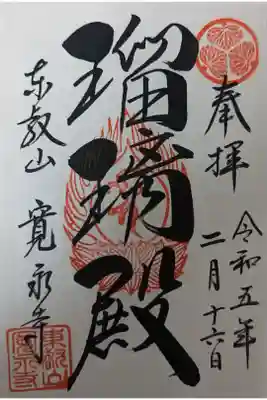 奉拝
令和五年
二月十六日
瑠璃殿
東叡山
寛永寺
東叡山
寛永寺